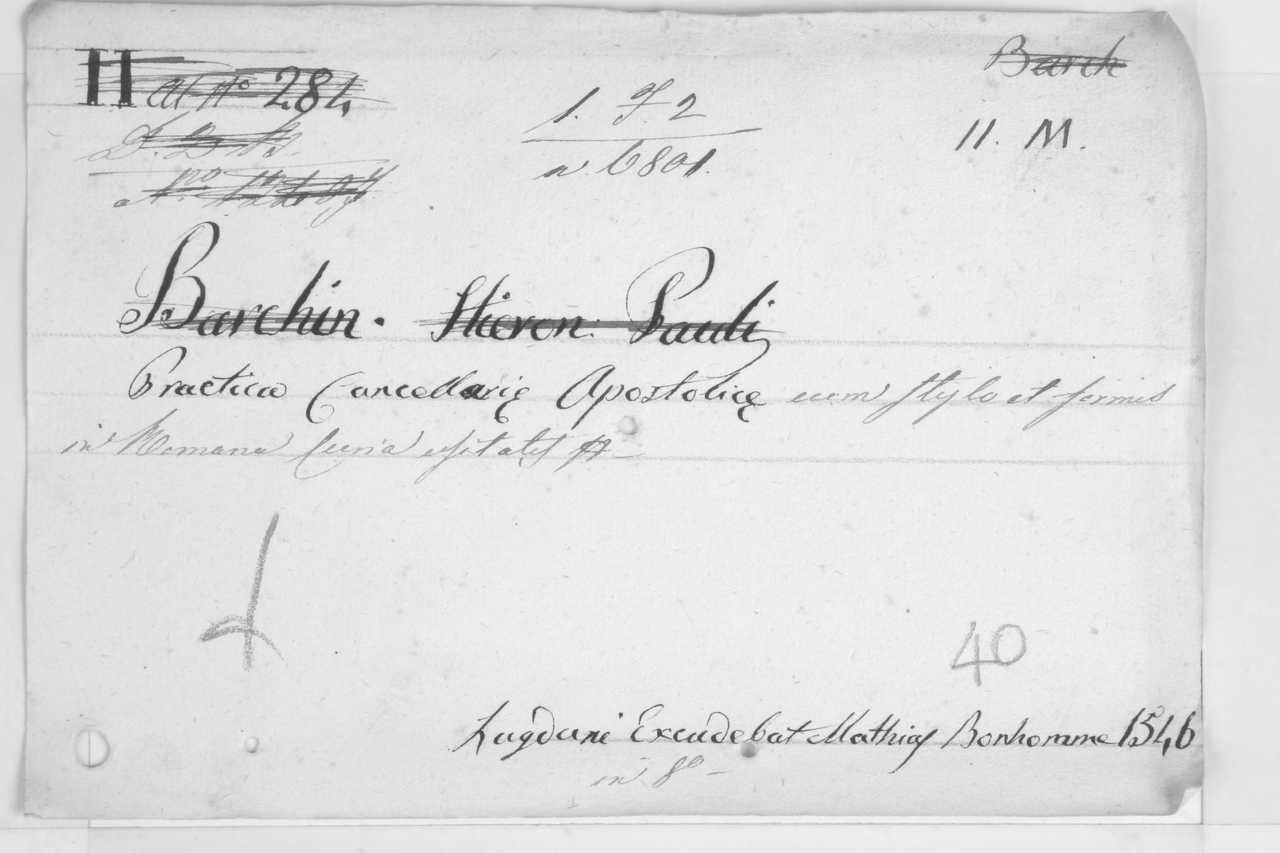 Barch
II at N.º 284
1. F. 2
11. M.
n 6801.
Barchin. Hieron. Pauli
Practica Cancellarię Apostolicę cum stylo et formis
in Romana Curia usitatis
40
Lugduni Excudebat Mathias Bonhomme 1546
in 8º